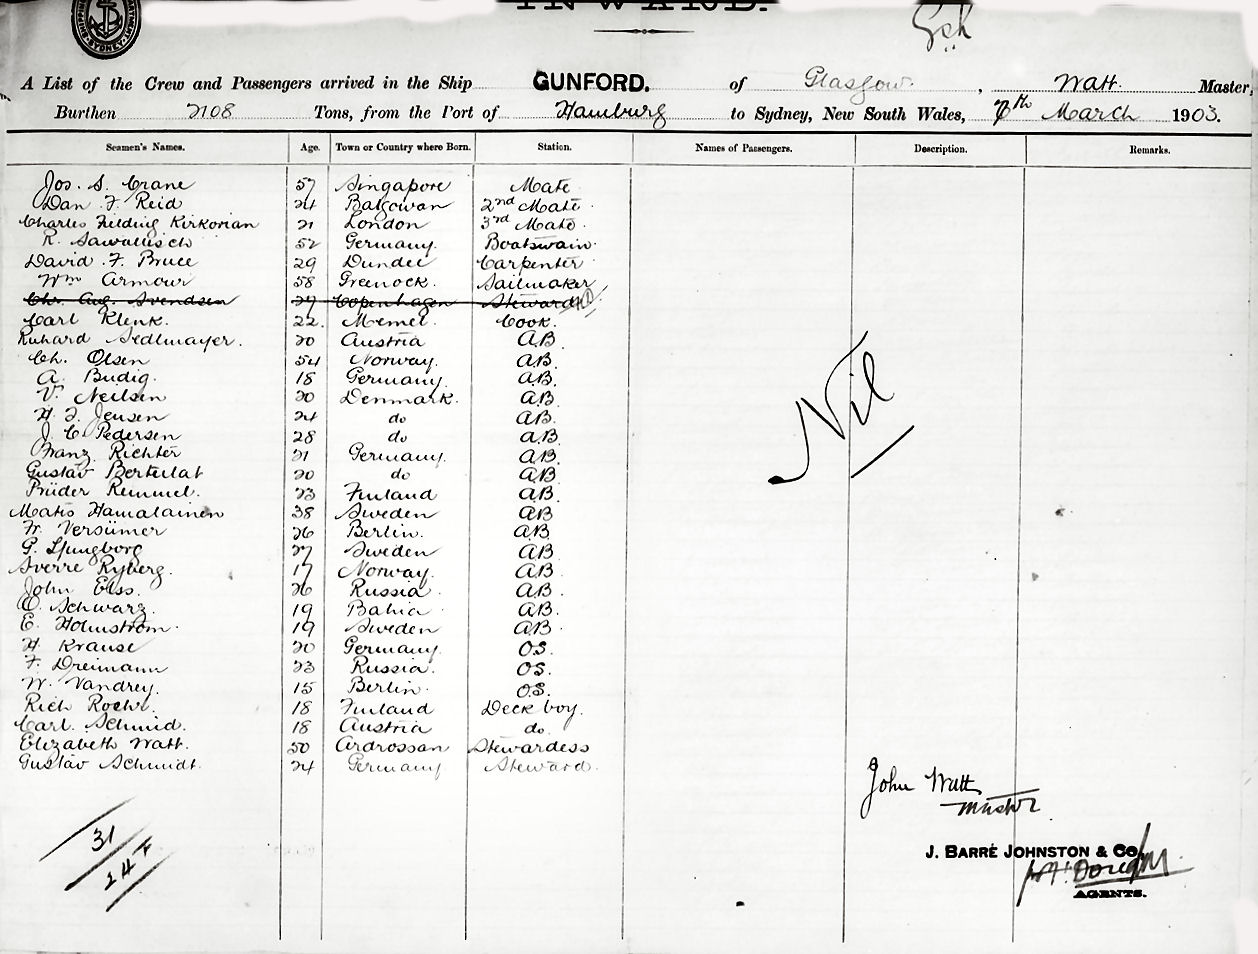 INWARD.
A List of the Crew and Passengers arrived in the Ship GUNFORD. of Glasgow, Watt Master,
Burthen 2108 Tons, from the Port of Hamburg to Sydney, New South Wales, 7th March 1903.
Seamen's Names. Age. Town or Country where Born. Station. Names of Passengers. Description. Remarks.
Jos. S. Crane 57 Singapore Mate
Dan F. Reid 24 2nd Mate
Charles Fielding Kirkorian 21 London 3rd Mate
R. Sawallisch 52 Germany. Boatswain
David F. Bruce 29 Dundee Carpenter
Wm Armour 58 Greenock. Sailmaker
Chr. Aug. Svendsen 27 Copenhagen Steward
Carl Klenk. 22. Memel. Cook.
Richard Sedlmayer. 20 Austria A.B.
Ch. Olsen 54 Norway. A.B.
A. Budig. 18 Germany. A.B.
V. Neilsen 20 Denmark. A.B.
H. J. Jensen 24 do A.B.
J. C. Pedersen 28 do A.B.
Franz Richter 21 Germany. A.B.
Gustav Bertulat 20 do A.B.
Prüder Remmel. 23 Finland A.B.
Matts Hamalainen 38 Sweden A.B.
Fr. Versümer 26 Berlin. A.B.
G. Ljungborg 27 Sweden A.B.
Sverre Ryberg. 17 Norway. A.B.
John Elss. 26 Russia. A.B.
O. Schwarz. 19 Bahia A.B.
E. Holmström. 19 Sweden A.B.
H. Krause 20 Germany. O.S.
F. Dreimann 23 Russia. O.S.
W. Vandrey. 15 Berlin. O.S.
Rich 18 Finland Deck boy.
Carl. Schmid. 18 Austria do.
Elizabeth Watt. 50 Ardrossan Stewardess
Gustav Schmidt. 24 Germany Steward.
Nil
John Watt
Master
31
24
J. BARRÉ JOHNSTON & Co.
AGENTS.